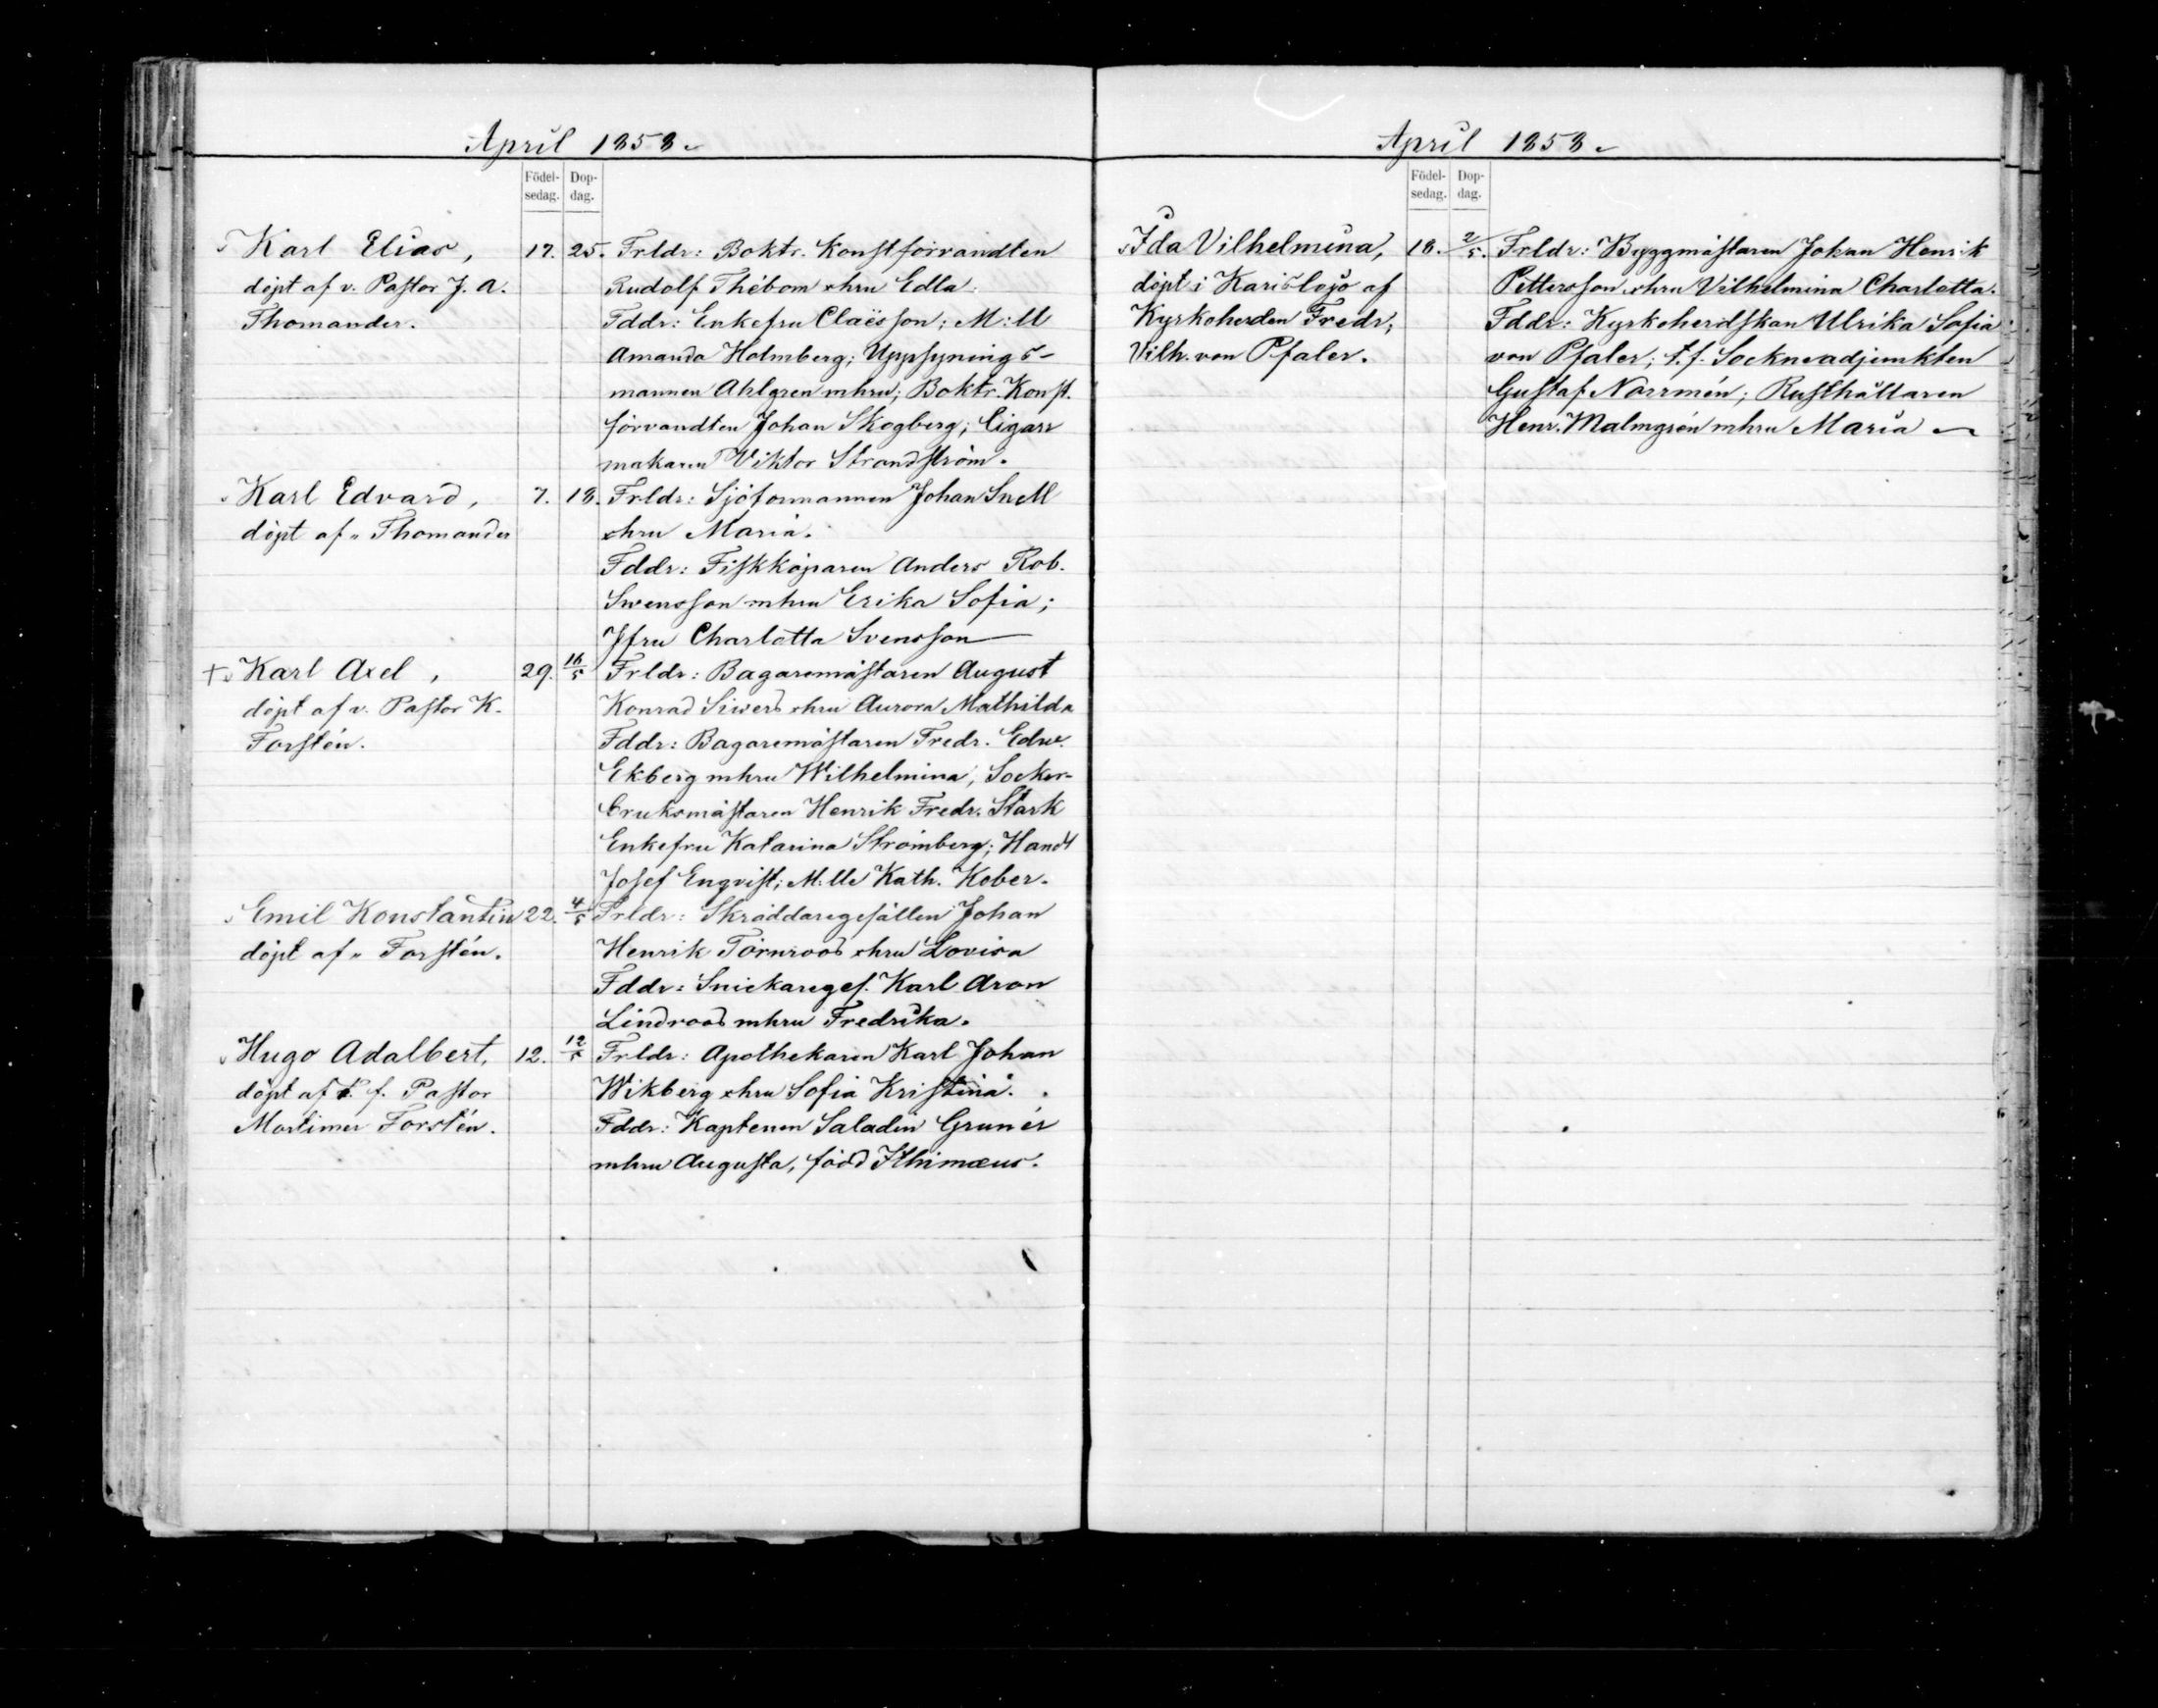 April 1858.
Födel-
sedag.
Dop-
dag.
Karl Elias, 17. 25. Frldr: Boktr. Konstförvandten
döpt af v. Pastor J. A. Rudolf Thébom o hru Edla.
Thomander. Fddr: Enkefru Claësson; M:ll
Amanda Holmberg; Uppsynings-
mannen Ahlgren m hru; Boktr. Konst.
förvandten Johan Skogberg; Cigarr
makaren Viktor Strandström.
Karl Edvard, 7. 18. Frldr: Sjötormannen Johan Snell
döpt af " Thomander o hru Maria.
Fddr: Fiskköparen Anders Rob.
Swensson m hru Erika Sofia;
Jfru Charlotta Svensson
+ Karl Axel, 29. 16/5 Frldr: Bagaremästaren August
döpt af v. Pastor K. Konrad Siwers o hru Aurora Mathilda
Forstén. Fddr: Bagaremästaren Fredr. Edw.
Ekberg m hru Wilhelmina; Socker-
bruksmästaren Henrik Fredr. Stark
Enkefru Katarina Strömberg; Handl
Josef Engvist; M:lle Kath. Kober.
Emil Konstantin 22. 4/5 Frldr: Skräddaregesällen Johan
döpt af " Forstén. Henrik Törnroos o hru Lovisa
Fddr: Snickareges. Karl Aron
Lindroos m hru Fredrika.
Hugo Adalbert, 12. 12/5 Frldr: Apothekaren Karl Johan
döpt af t. f. Pastor Wikberg o hru Sofia Kristina.
Mortimer Forstén. Fddr: Kaptenen Saladin Grunér
m hru Augusta, född Ithimæus.
April 1858.
Födel-
sedag.
Dop-
dag.
Ida Vilhelmina, 18. 2/5. Frldr: Byggmästaren Johan Henrik
döpt i Karislojo af Pettersson o hru Vilhelmina Charlotta.
Kyrkoherden Fredr. Fddr: Kyrkoherdskan Ulrika Sofia
Vilh. von Pfaler. von Pfaler; t.f. Sockneadjunkten
Gustaf Norrmén; Rusthållaren
Henr. Malmgrén m hru Maria